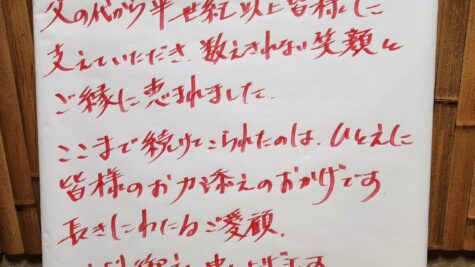 父の代から半世紀以上皆様に
支えていただき、数えきれない笑顔と
ご縁に恵まれました。
ここまで続けてこられたのは、ひとえに
皆様のお力添えのおかげです
長きにわたるご愛顧、
御礼申し上げます